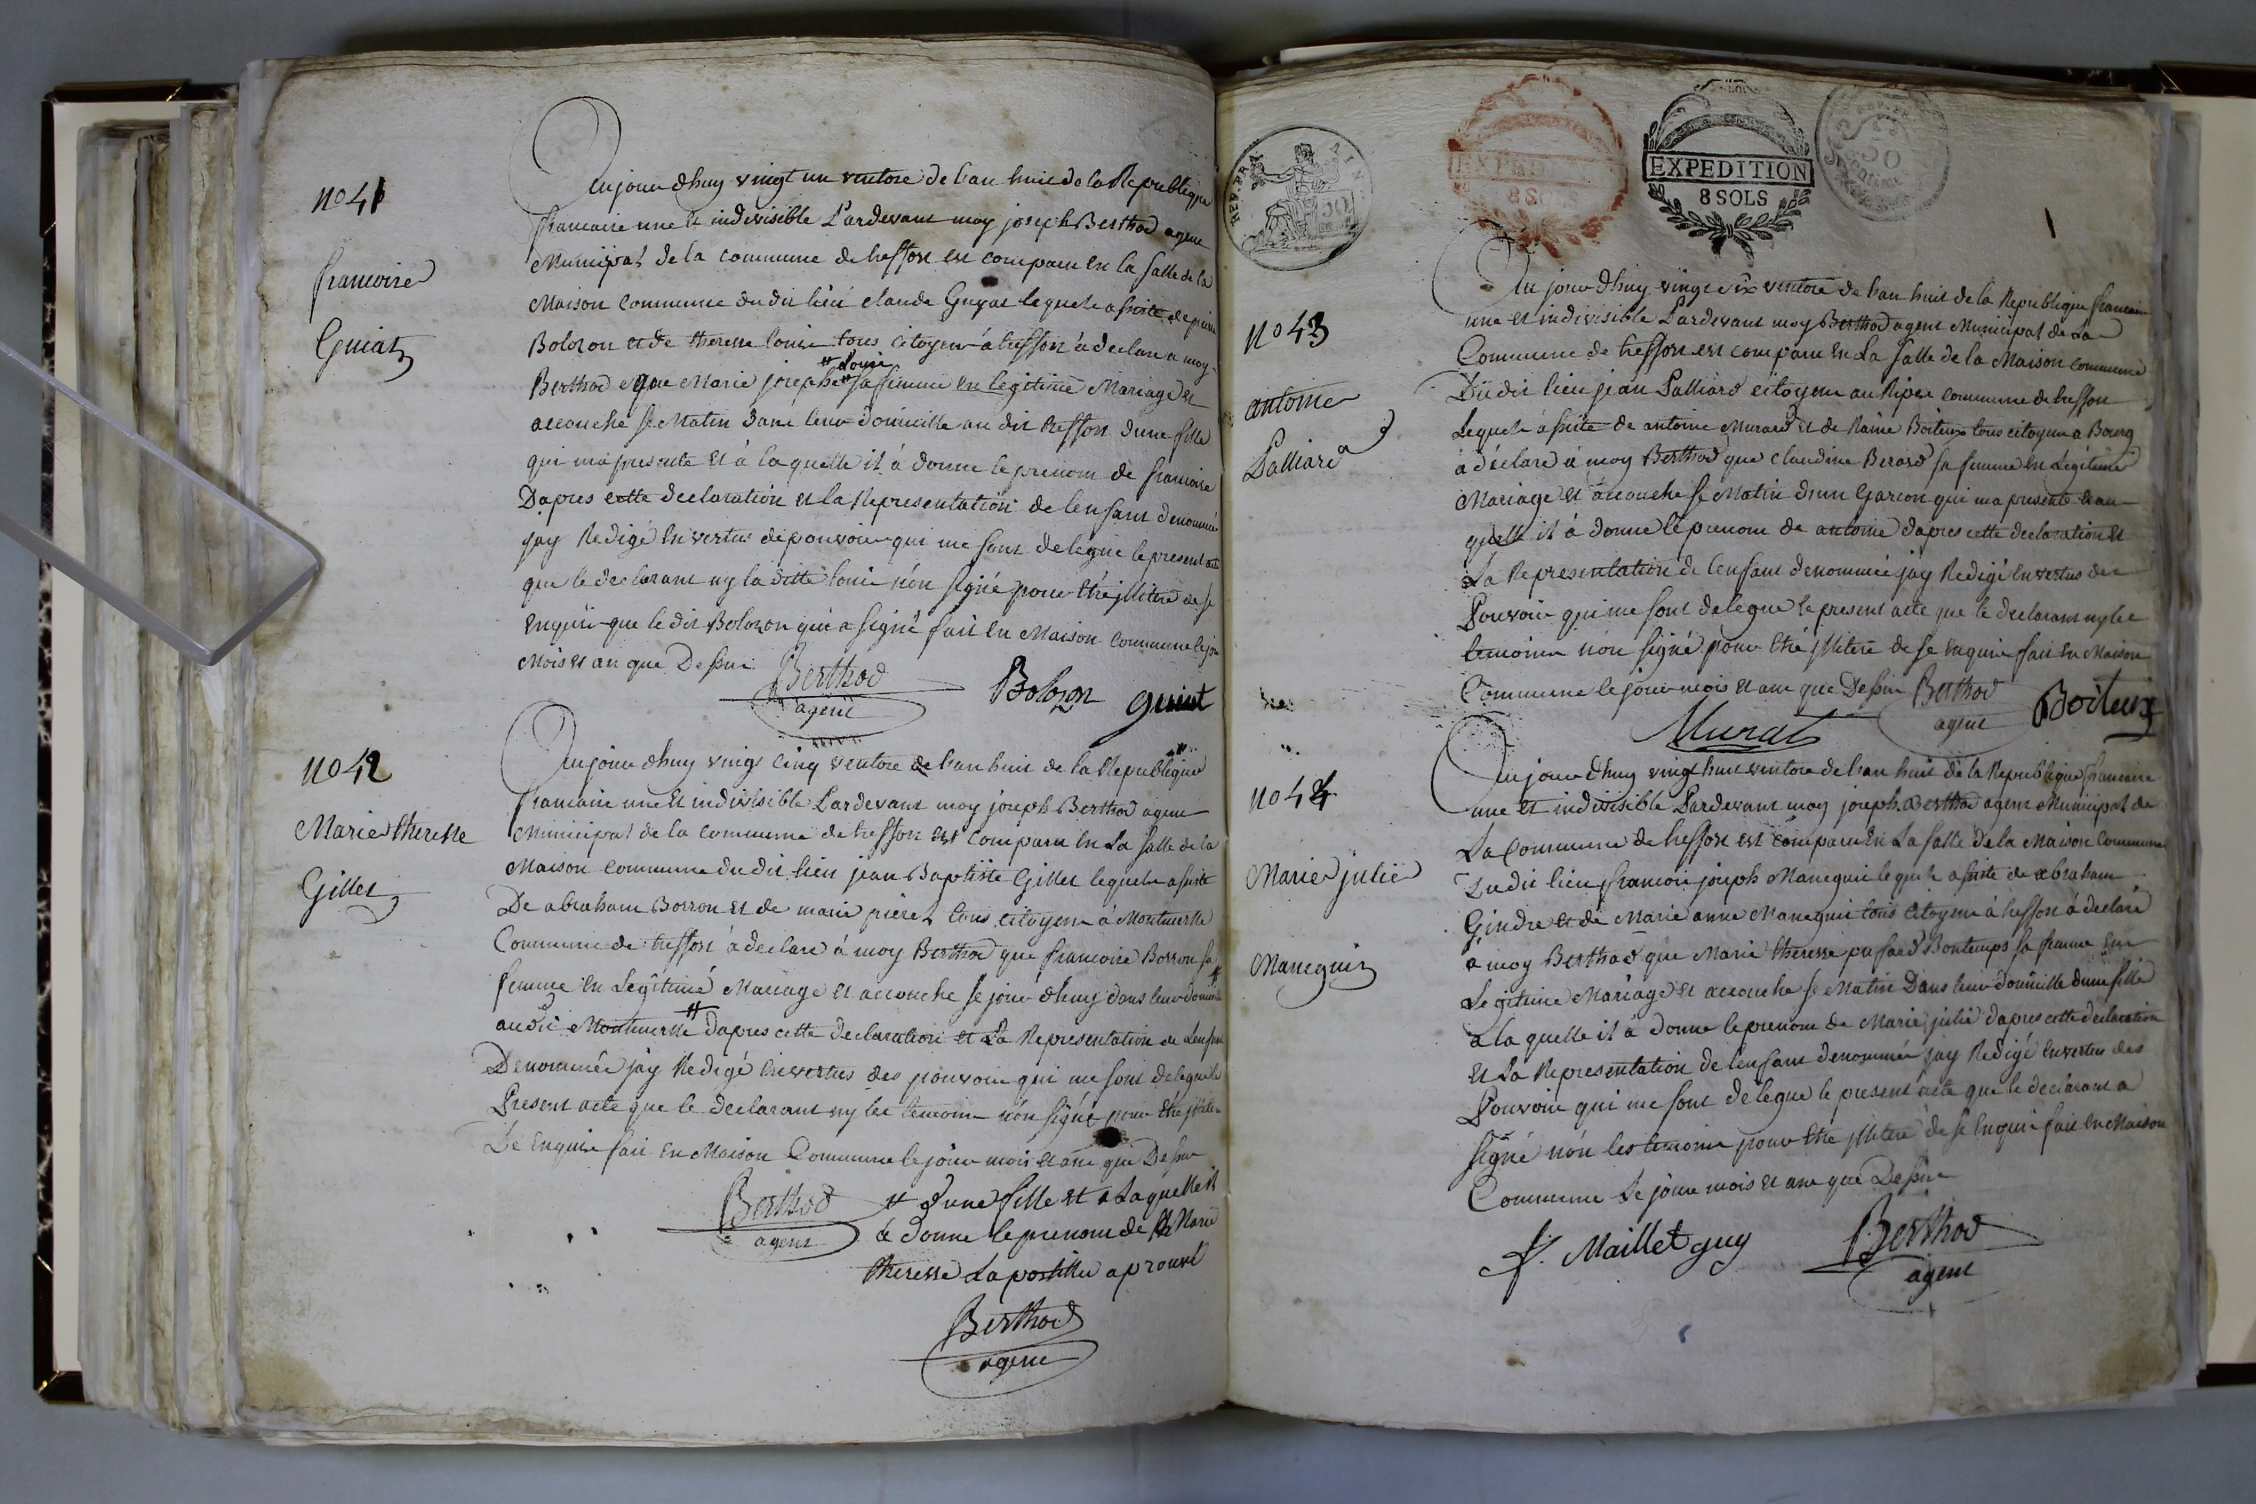 no 41
francoise
Guiat
Aujour dhuy vingt un ventose de lan huit de la Republique
francaise une et indivisible Pardevant moy joseph Berthod agent
Municipal de la commune de treffort est comparu en la salle de la
Maison commune du dit lieu claude Guyat lequel assisté de pierre
Bolozon et de theresse louise tous citoyen á treffort á declare a moy
Berthod que Marie josephe # sa femme en legitime Mariage et
# Louise
accouche se Matin dans leur domicille au dit treffort dune fille
qui ma presente et á laquelle il á donne le prenom de francoise
Dapres cette declaration et la Representation de lenfant denommé
jay Redigé en vertus de pouvoir qui me sont delegue le present acte
que le declarant ny la ditte louise nón signé pour être illitere de se
enquis que le dit Bolozon qui a signé fait en Maison commune le jour
Mois et an que Dessus Berthod
agent
Bolozon guiat
no 42
Marie theresse
Gillet
Aujour dhuy vingt cinq ventose de lan huit de la Republique
francaise une et indivisible Pardevant moy joseph Berthod agent
Municipal de la commune de treffort est comparu en La salle de la
Maison commune du dit lieu jean Baptiste Gillet lequel assisté
De abraham Borron et de marie tous citoyens á Montmerle
Commune de treffort á declare á moy Berthod que francoise Borron sa
femme en Legitime Mariage et accouche se jour dhuy dans leur domicille
audit Montmerle # dapres cette declaration et La Representation de Lenfant
Denommée jay Redigé en vertus des pouvoir qui me sont delegue le
Present acte que le declarant ny les temoins nón signé pour être illitere
De enquis fait en Maison Commune le jour mois et an que Dessus
Berthod
agent
# dune fille et a Laquelle il
á donne le prenom de Marie
theresse La postille aprouvé
Berthod
agent
REP. FRA
AIN
EXPEDITION
8 SOLS
EXPEDITION
8 SOLS
50
no 43
antoine
Palliard
Aujour dhuy vingt six ventose de lan huit de la Republique francaise
une et indivisible Pardevant moy Berthod agent Municipal de La
Commune de treffort est comparu en La salle de la Maison commune
Du dit lieu jean Palliard citoyen au Riper commune de treffort
Lequel assiste de antoine Murard et de Boiteux tous citoyen a Bourg
á déclare á moy Berthod que claudine Berard sa femme en Legitime
Mariage et accouche se Matin dun Garcon qui ma presente et au
quelle il á donne le prenom de antoine dapres cette declaration et
La Representation de lenfant denommée jay Redigé en vertus des
Pouvoir qui me sont delegue le present acte que le declarant ny les
temoins nón signé pour être illitere de se enquis fait en Maison
Commune le jour mois et an que Dessus Berthod
agent
Boiteux
Murat
no 44
Marie julie
Maneguir
Aujour dhuy vingt huit ventose de lan huit de la Republique francaise
une et indivisible Pardevant moy joseph Berthod agent Municipal de
La Commune de treffort est comparu en La salle de la Maison commune
Du dit lieu francois joseph Maneguir lequel assiste de abraham
Gindre et de Marie anne Maneguir tous citoyen á treffort á declaré
a moy Berthod que Marie theresse Bontemps sa femme en
Legitime Mariage et accouche se Matin Dans leur domicille dune fille
a la quelle il á donne le prenom de Marie julie dapres cette declaration
et La Representation de lenfant denommée jay Redigé en vertus des
Pouvoir qui me sont delegue le present acte que le declarant a
signé nón les temoins pour être illitere de se enquis fait en Maison
Commune Le jour mois et an que Dessus
f. Maillet guy
Berthod
agent